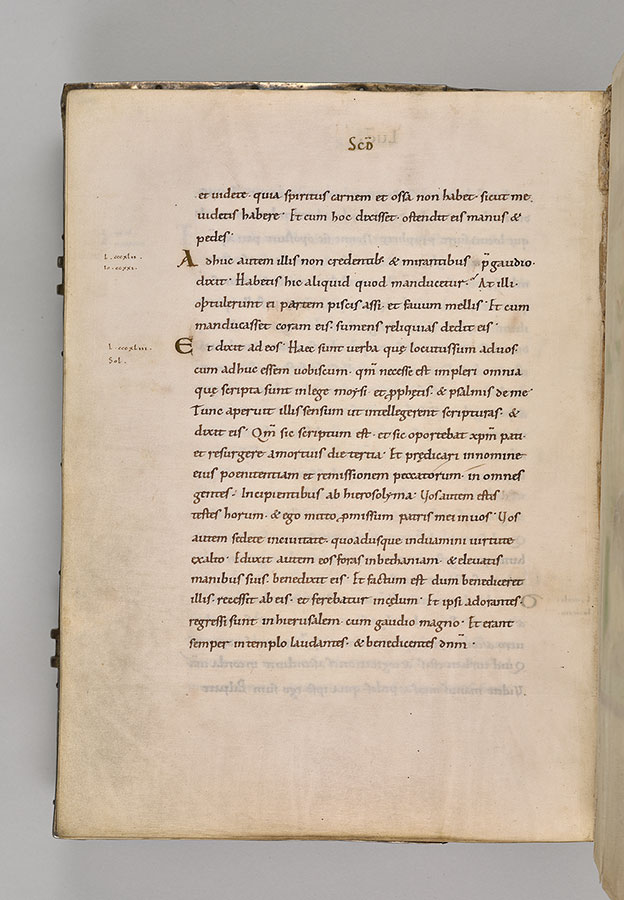 Scd̄
et uidete · quia spiritus carnem et ossa non habet · sicut me
uidetis habere · Et cum hoc dixisset · ostendit eis manus &
pedes ·
l. cccxlii.
Io. ccxxi.
Adhuc autem illis non credentib; & mirantibus p̄gaudio ·
dixit · Habetis hic aliquid quod manducetur · At illi ·
optulerunt ei partem piscis assi · et fauum mellis · Et cum
manducasset coram eis · sumens reliquias dedit eis ·
l. cccxliii.
Sol.
Et dixit ad eos · Haec sunt uerba quę locutussum aduos
cum adhuc essem uobiscum · qm̄ necesse est impleri omnia
quę scripta sunt inlege moysi · et ꝓphetis · & psalmis deme ·
Tunc aperuit illis sensum ut intellegerent scripturas · &
dixit eis · Qm̄ sic scriptum est · et sic oportebat xp̄m pati ·
et resurgere amortuis die tertia · Et prędicari innomine
eius poenitentiam et remissionem peccatorum · in omnes
gentes · Incipientibus ab hierosolyma · Uos autem estis
testes horum · & ego mitto ꝓmissum patris mei inuos · Uos
autem sedete inciuitate · quoadusque induamini uirtute
exalto · Eduxit autem eos foras inbethaniam · & eleuatis
manibus suis · benedixit eis · Et factum est dum benediceret
illis · recessit ab eis · et ferebatur incęlum · Et ipsi adorantes ·
regressi sunt inhierusalem · cum gaudio magno · Et erant
semper intemplo laudantes · & benedicentes dnm̄ ·